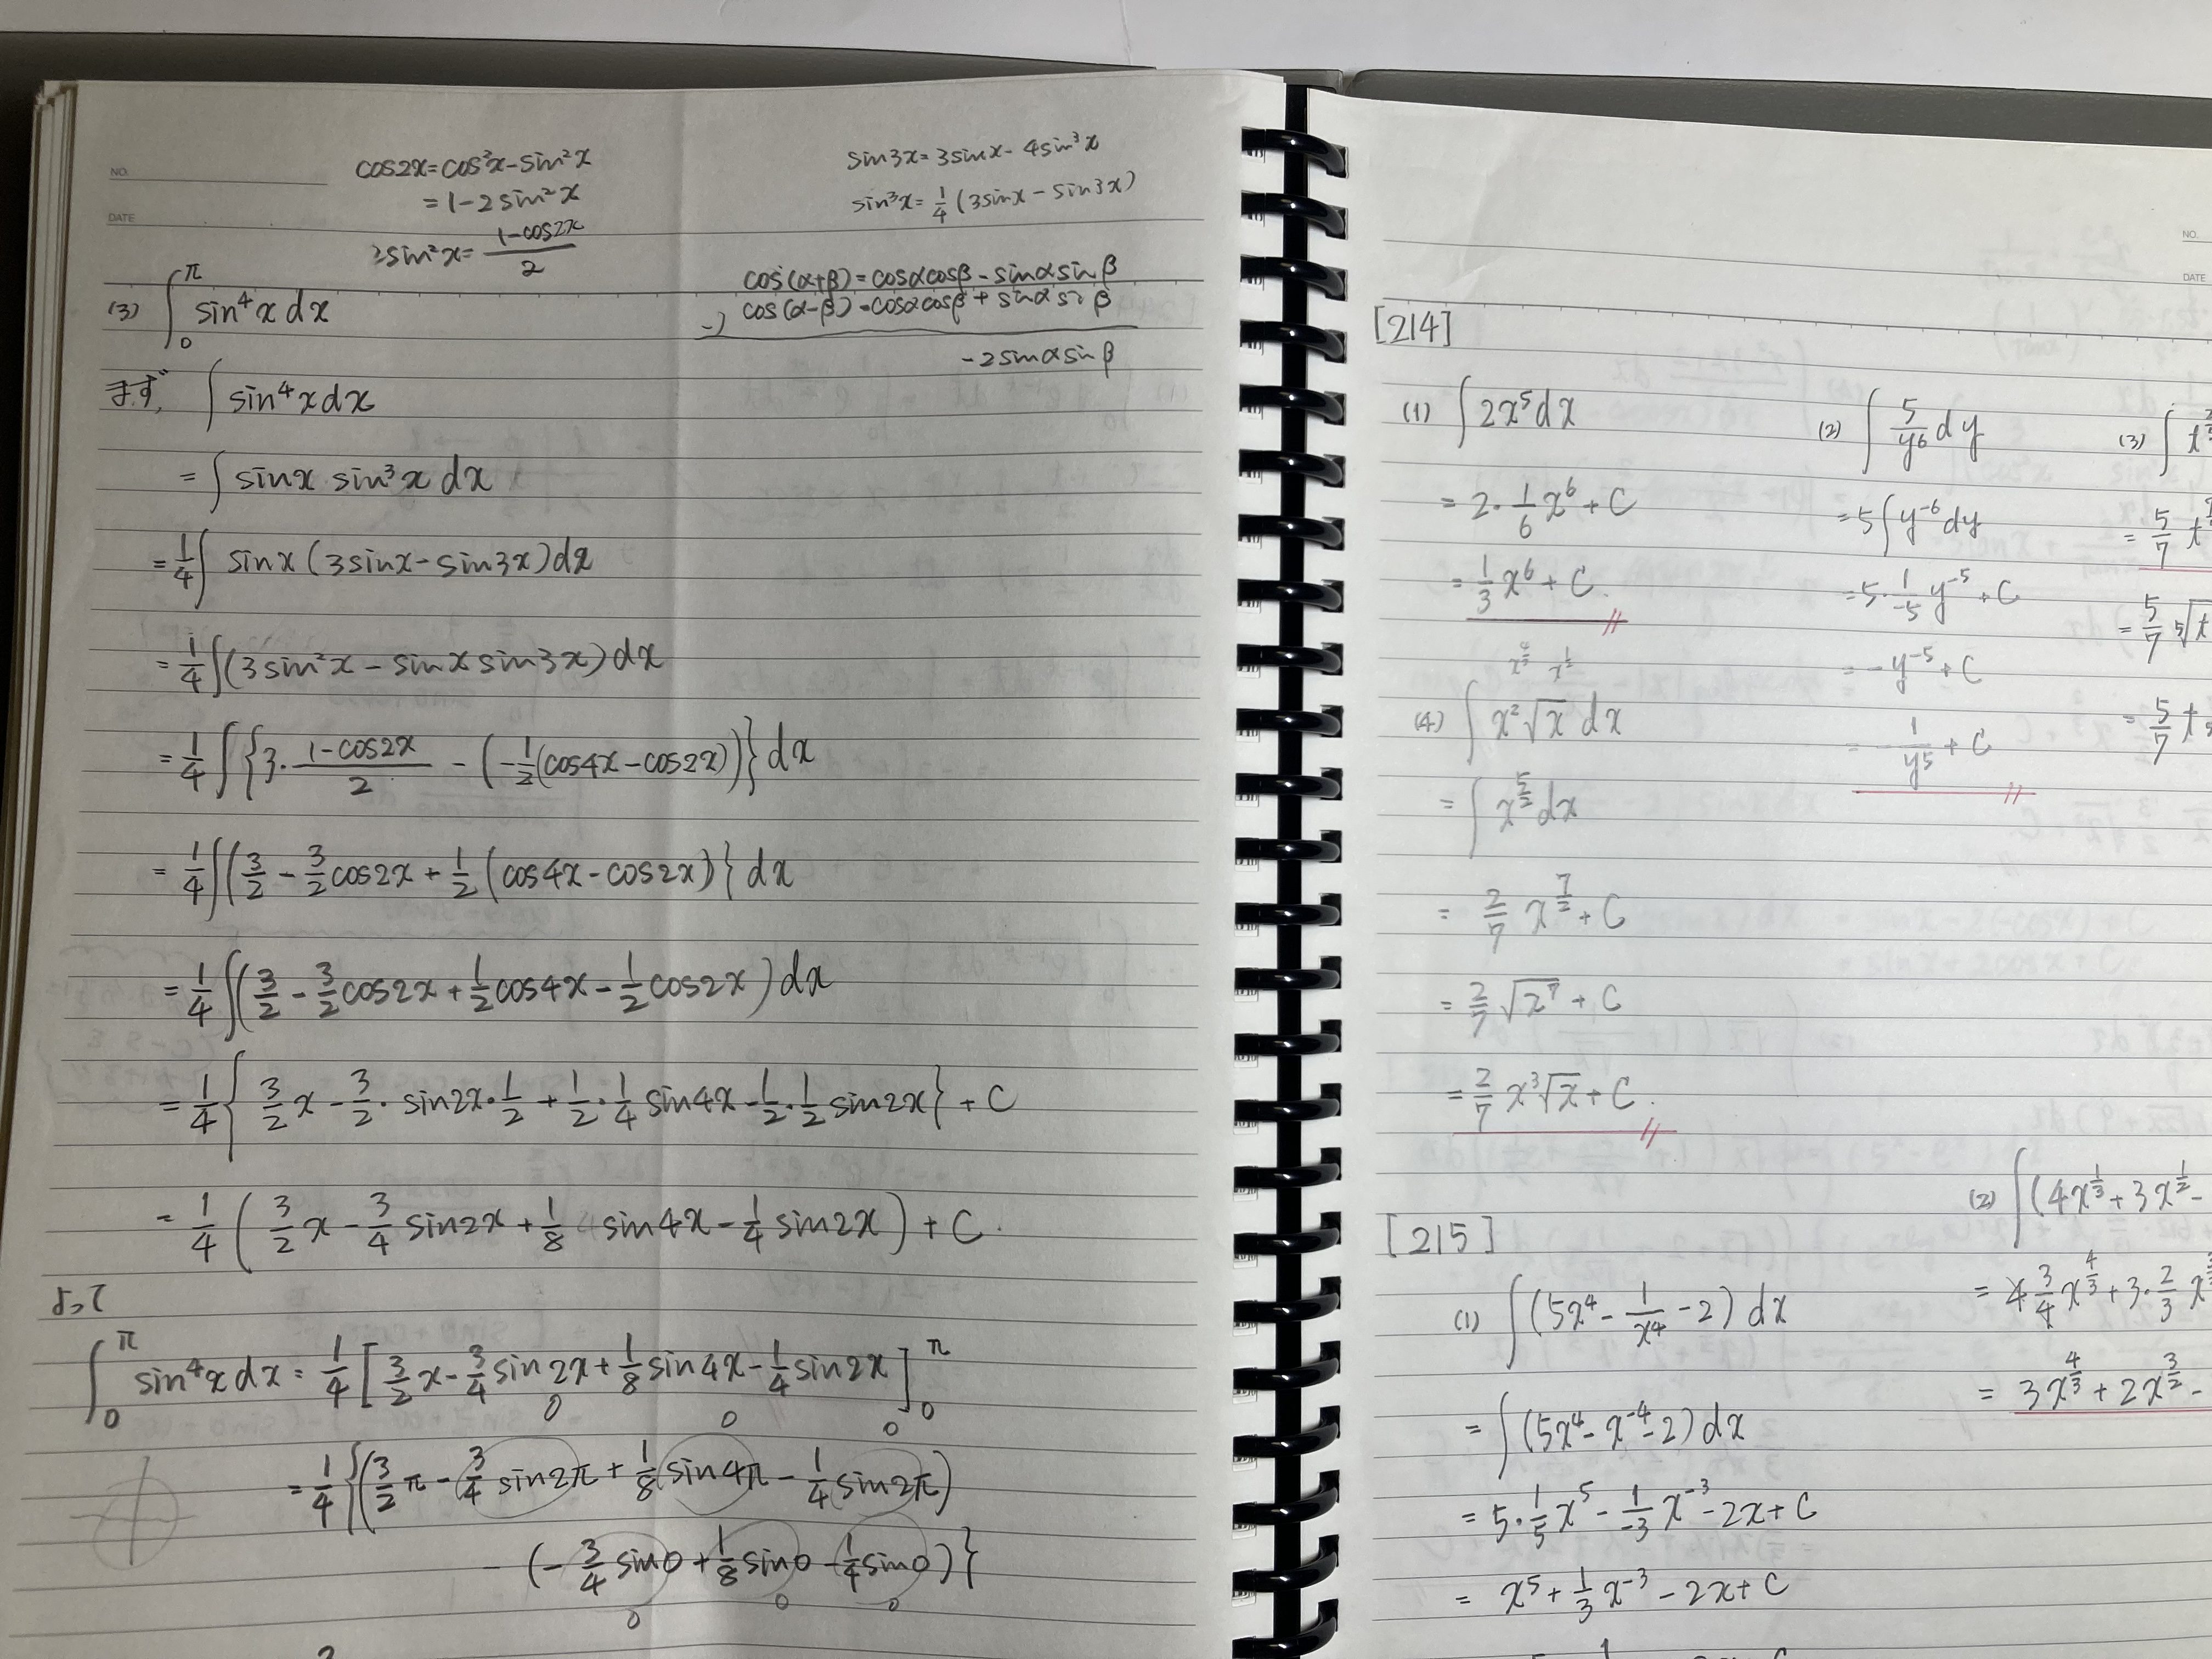 NO.
DATE
cos2x=cos²x-sin²x
=1-2sin²x
sin²x=\frac{1-cos2x}{2}
sin3x=3sinx-4sin³x
sin³x=\frac{1}{4}(3sinx-sin3x)
cos(α+β)=cosαcosβ-sinαsinβ
-) cos(α-β)=cosαcosβ+sinαsinβ
-2sinαsinβ
(3) ∫_0^π sin⁴x dx
まず, ∫ sin⁴x dx
= ∫ sinx sin³x dx
= \frac{1}{4}∫ sinx(3sinx-sin3x)dx
= \frac{1}{4}∫(3sin²x - sinx sin3x)dx
= \frac{1}{4}∫{3·\frac{1-cos2x}{2} - (-\frac{1}{2}(cos4x-cos2x))}dx
= \frac{1}{4}∫(\frac{3}{2} - \frac{3}{2}cos2x + \frac{1}{2}(cos4x-cos2x)}dx
= \frac{1}{4}∫(\frac{3}{2} - \frac{3}{2}cos2x + \frac{1}{2}cos4x - \frac{1}{2}cos2x)dx
= \frac{1}{4}{\frac{3}{2}x - \frac{3}{2}·sin2x·\frac{1}{2} + \frac{1}{2}·\frac{1}{4}sin4x - \frac{1}{2}·\frac{1}{2}sin2x} + C
= \frac{1}{4}(\frac{3}{2}x - \frac{3}{4}sin2x + \frac{1}{8}sin4x - \frac{1}{4}sin2x) + C.
よって
∫_0^π sin⁴x dx = \frac{1}{4}[\frac{3}{2}x - \frac{3}{4}sin2x + \frac{1}{8}sin4x - \frac{1}{4}sin2x]_0^π
0 0 0
= \frac{1}{4}{(\frac{3}{2}π - \frac{3}{4}sin2π + \frac{1}{8}sin4π - \frac{1}{4}sin2π)
- (-\frac{3}{4}sin0 + \frac{1}{8}sin0 - \frac{1}{4}sin0)}
0 0 0
NO.
DATE
[214]
(1) ∫2x⁵dx
= 2·\frac{1}{6}x⁶+C
= \frac{1}{3}x⁶+C.
(2) ∫\frac{5}{y⁶}dy
= 5∫y⁻⁶dy
= 5·\frac{1}{-5}y⁻⁵+C
= -y⁻⁵+C
= -\frac{1}{y⁵}+C
(3) ∫
= \frac{5}{7}t
= \frac{5}{7}
= \frac{5}{7}t
(4) ∫x²√x dx
= ∫x^{\frac{5}{2}}dx
= \frac{2}{7}x^{\frac{7}{2}}+C
= \frac{2}{7}√x⁷+C
= \frac{2}{7}x³√x+C.
[215]
(1) ∫(5x⁴-\frac{1}{x⁴}-2)dx
= ∫(5x⁴-x⁻⁴-2)dx
= 5·\frac{1}{5}x⁵-\frac{1}{-3}x⁻³-2x+C
= x⁵+\frac{1}{3}x⁻³-2x+C
(2) ∫(4x^{\frac{1}{3}}+3x^{\frac{1}{2}}-
= 4\frac{3}{4}x^{\frac{4}{3}}+3·\frac{2}{3}x
= 3x^{\frac{4}{3}}+2x^{\frac{3}{2}}-